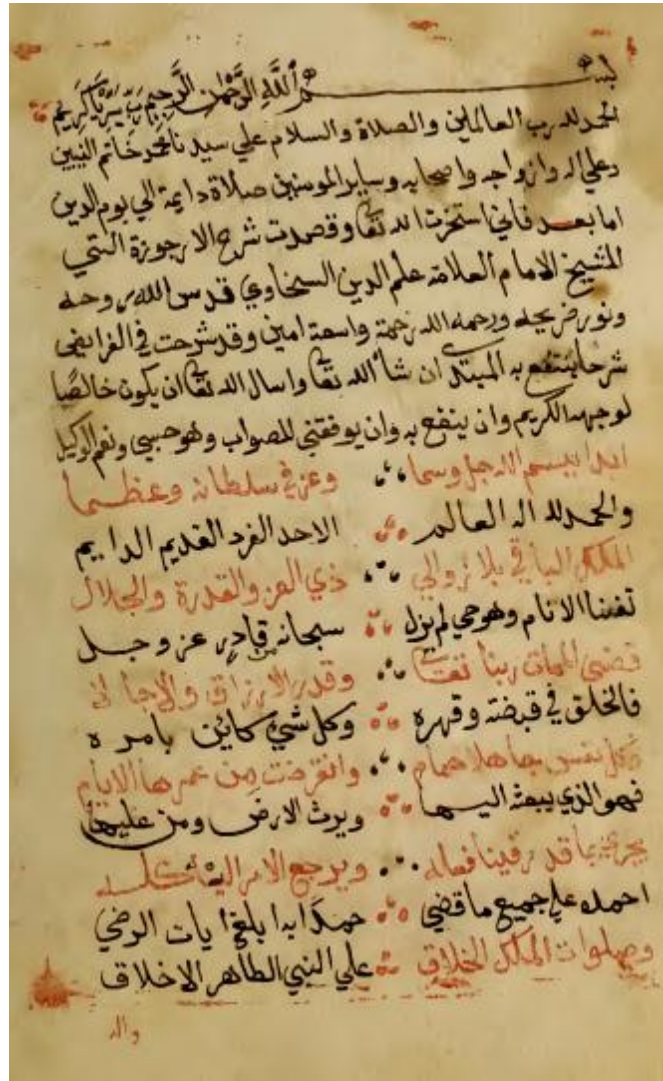 بسم الله الرحمن الرحيم رب يسر يا كريم
الحمد لله رب العالمين والصلاة والسلام علي سيدنا محمد خاتم النبيين
وعلي اله وازواجه واصحابه وساير المومنين صلاة دايمة الي يوم الدين
اما بعد فاني استخرت الله تعا وقصدت شرح الارجوزة التي
للشيخ الامام العلامة علم الدين السخاوي قدس الله روحه
ونور ضريحه ورحمه الله رحمة واسعة امين وقد شرحت في الفرايض
شرحا ينتفع به المبتدي ان شاء الله تعا واسال الله تعا ان يكون خالصًا
لوجهه الكريم وان ينفع به وان يوفقني للصواب وهو حسبي ونعم الوكيل
ابدا ببسم الله جل وسما وعز في سلطانه وعظما
والحمد لله اله العالم الاحد الفرد القديم الدايم
الملك الباقي بلا زوالي ذي العز والقدرة والجلال
تفننا الانام وهو حي لم يزل سبحانه قادر عز وجل
قضي الممات ربنا تعالى وقدر الارزاق والاجالا
فالخلق في قبضته وقهره وكل شيء كاين بامره
وكل نفس جاءها حمام وانقرضت من عمرها الايام
فهو الذي يبعثه اليها ويرث الارض ومن عليها
يجري بما قدر فينا فعله ويرجع الامر اليه كله
احمده علي جميع ما قضي حمدًا ابدا بلغ ايات الرضي
وصلوات الملك الخلاق علي النبي الطاهر الاخلاق
واله